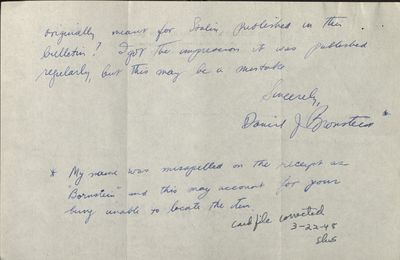 originally meant for Stalin, published in this
bulletin? I got the impression it was published
regularly, but this may be a mistake.
Sincerely,
David J Bronstein *
* My name was misspelled on the receipt as
"Bornstein" and this may account for your
being unable to locate the item.
card file corrected
3-22-45